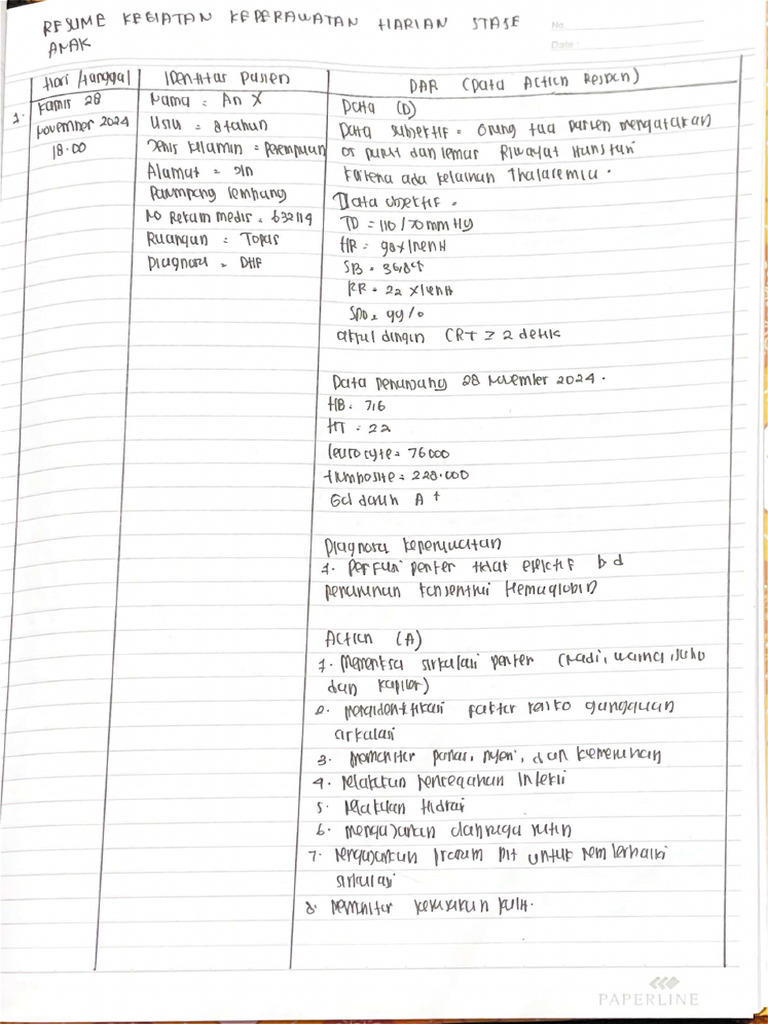 RESUME KEGIATAN KEPERAWATAN HARIAN STASE
ANAK
No.
Date :
Hari /tanggal
Identitas Pasien
DAR (Data Action Respon)
1.
Kamis 28
November 2024
18.00
Nama = An X
Usia = 8 tahun
Jenis kelamin = perempuan
Alamat = Jln
Parumpang lembang
No Rekam medis = 632114
Ruangan = Topas
Diagnosa = DHF
Data (D)
Data subjektif = Orang tua pasien mengatakan
os pucat dan lemas Riwayat transfusi
karena ada kelainan Thalasemia.
Data objektif =
TD = 110/70 mmHg
HR = 90x/menit
SB = 36,8°C
RR = 22 x/menit
SpO2 99%
akral dingin CRT ≥ 2 detik
Data penunjang 28 November 2024.
HB = 7,6
HT = 22
leurocyte = 76000
trombosite = 228.000
Gol darah A +
Diagnosa keperawatan
1. Perfusi perifer tidak efektif b d
penurunan konsentrasi Hemaglobin
Action (A)
1. Memeriksa sirkulasi perifer (nadi, warna, suhu
dan kapiler)
2. mengidentifikasi faktor resiko gangguan
sirkulasi
3. memonitor panas, nyeri, dan kemerahan
4. Melakukan pencegahan Infeksi
5. Melakukan Hidrasi
6. menganjurkan olahraga rutin
7. Menganjurkan program Diit untuk memperbaiki
sirkulasi
8. Memonitor kerusakan kulit.
PAPERLINE